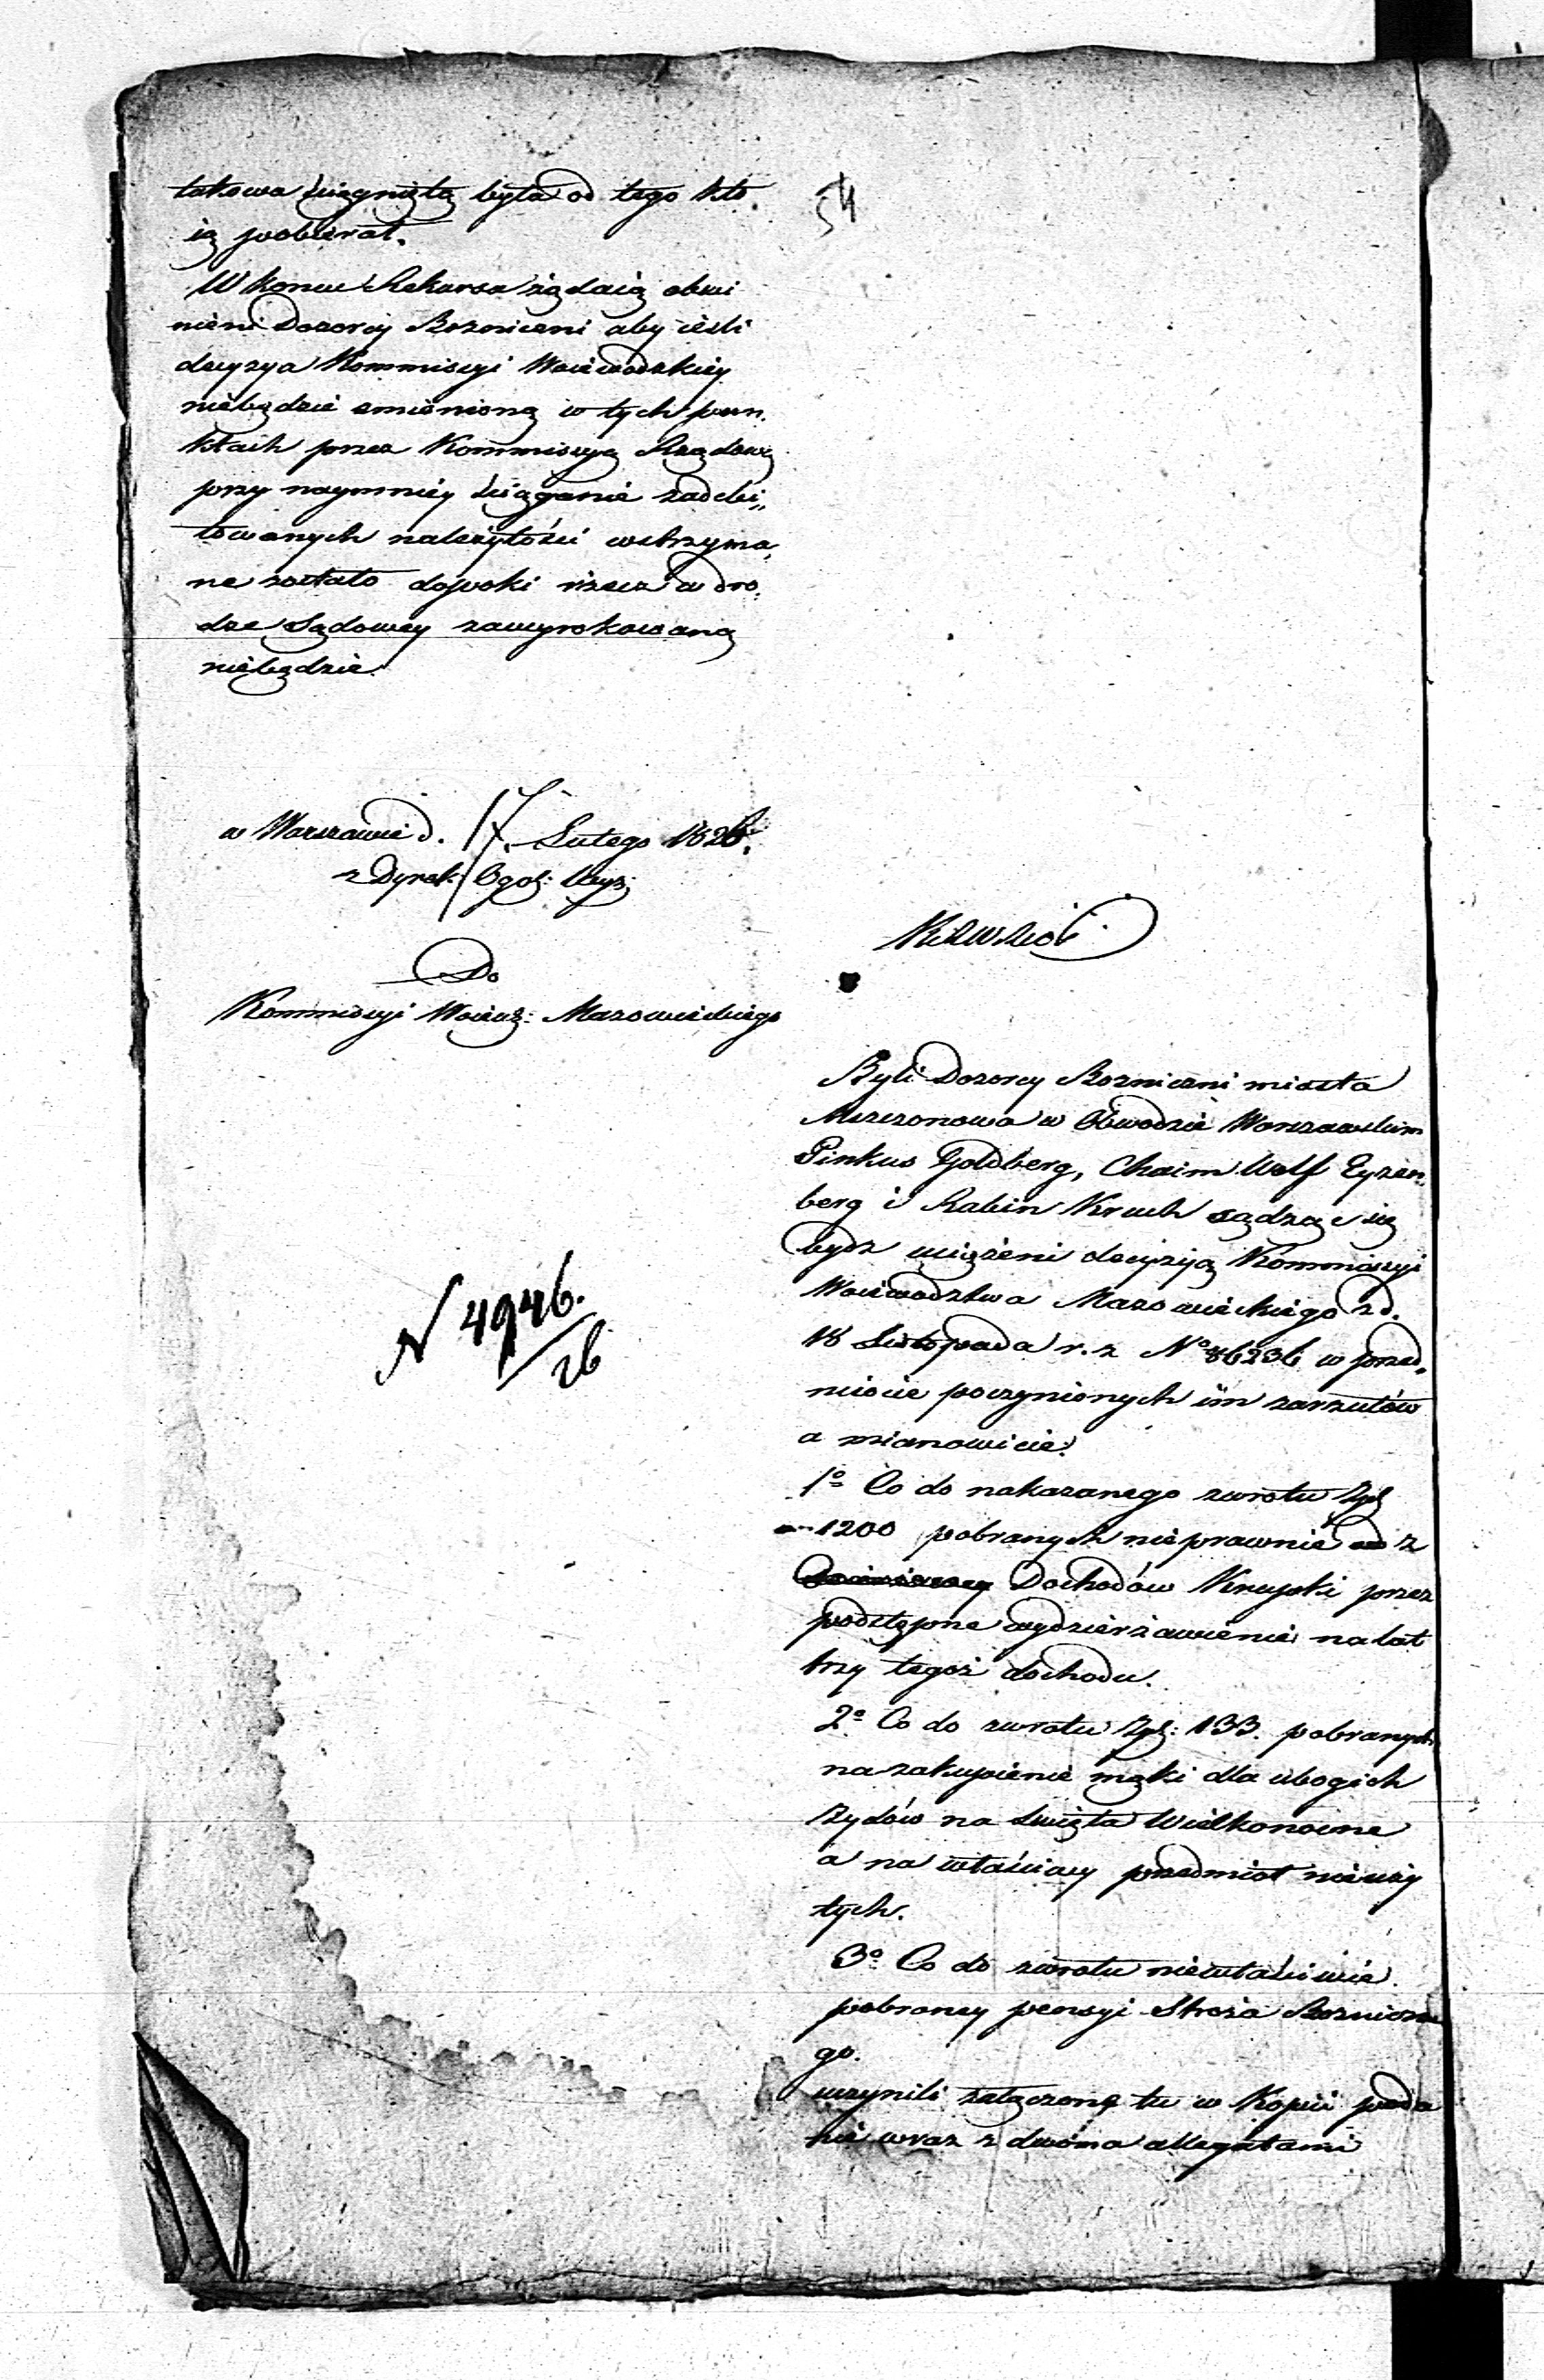 takowa ściągniętą była od tego kto
ią pobierał.
W końcu Rekursa żądaią obwi
nieni Dozorcy Bożniczni aby ieśli
decyzya Kommissyi Woiewodzkiey
niebędzie zmienioną w tych pun-
ktach przez Kommissyą Rządową
przy naymniey ściąganie zadebi„
towanych należytości wstrzyma„
ne zostało dopoki rzecz w dro„
dze Sądowey zawyrokowaną
niebędzie.
54
w Warszawie d. 17. Lutego 1826.
z Dyrek: Ogol:
Do
Kommissyi Woiewz: Mazowieckiego
N 4946.
26
Byli Dozorcy Bozniczni miasta
Mszczonowa w Obwodzie Warszawskim
Pinkus Goldberg, Chaim Wolf Eyzen„
berg i Rabin Kruch sądząc się
bydz uciążeni decyzyą Kommissyi
Woiewodztwa Mazowieckiego z d.
18 Listopada r. z N° 86236 w przed„
miocie poczynionych im zarzutów
a mianowicie:
1° Co do nakazanego zwrotu Złp
1200 pobranych nieprawnie z
Dochodów Krupki przez
podstępne wydzierżawienie na lat
trzy tegoż dochodu.
2° Co do zwrotu Złp: 133. pobranych
na zakupienie mąki dla ubogich
Żydów na Święta Wielkonocne
a na właściwy przedmiot nieuży
tych.
3° Co do zwrotu niewłaściwie
pobraney pensyi Stroża Boznicze
go.
uczynili załączone tu w Kopii poda
nie wraz z dwóma allegatami